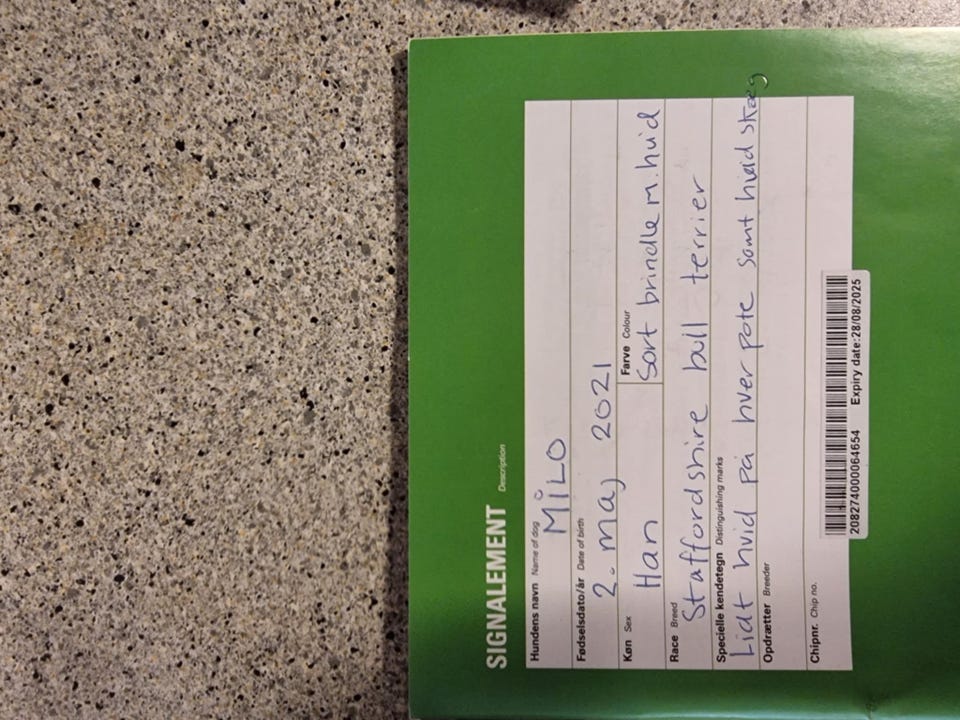 SIGNALEMENT Description
Hundens navn Name of dog
MILO
Fødselsdato/år Date of birth
2. maj 2021
Køn Sex
Han
Farve Colour
Sort brindle m. hvid
Race Breed
Staffordshire bull terrier
Specielle kendetegn Distinguishing marks
Lidt hvid på hver pote samt hvid skæg
Opdrætter Breeder
Chipnr. Chip no.
208274000064654 Expiry date:28/08/2025